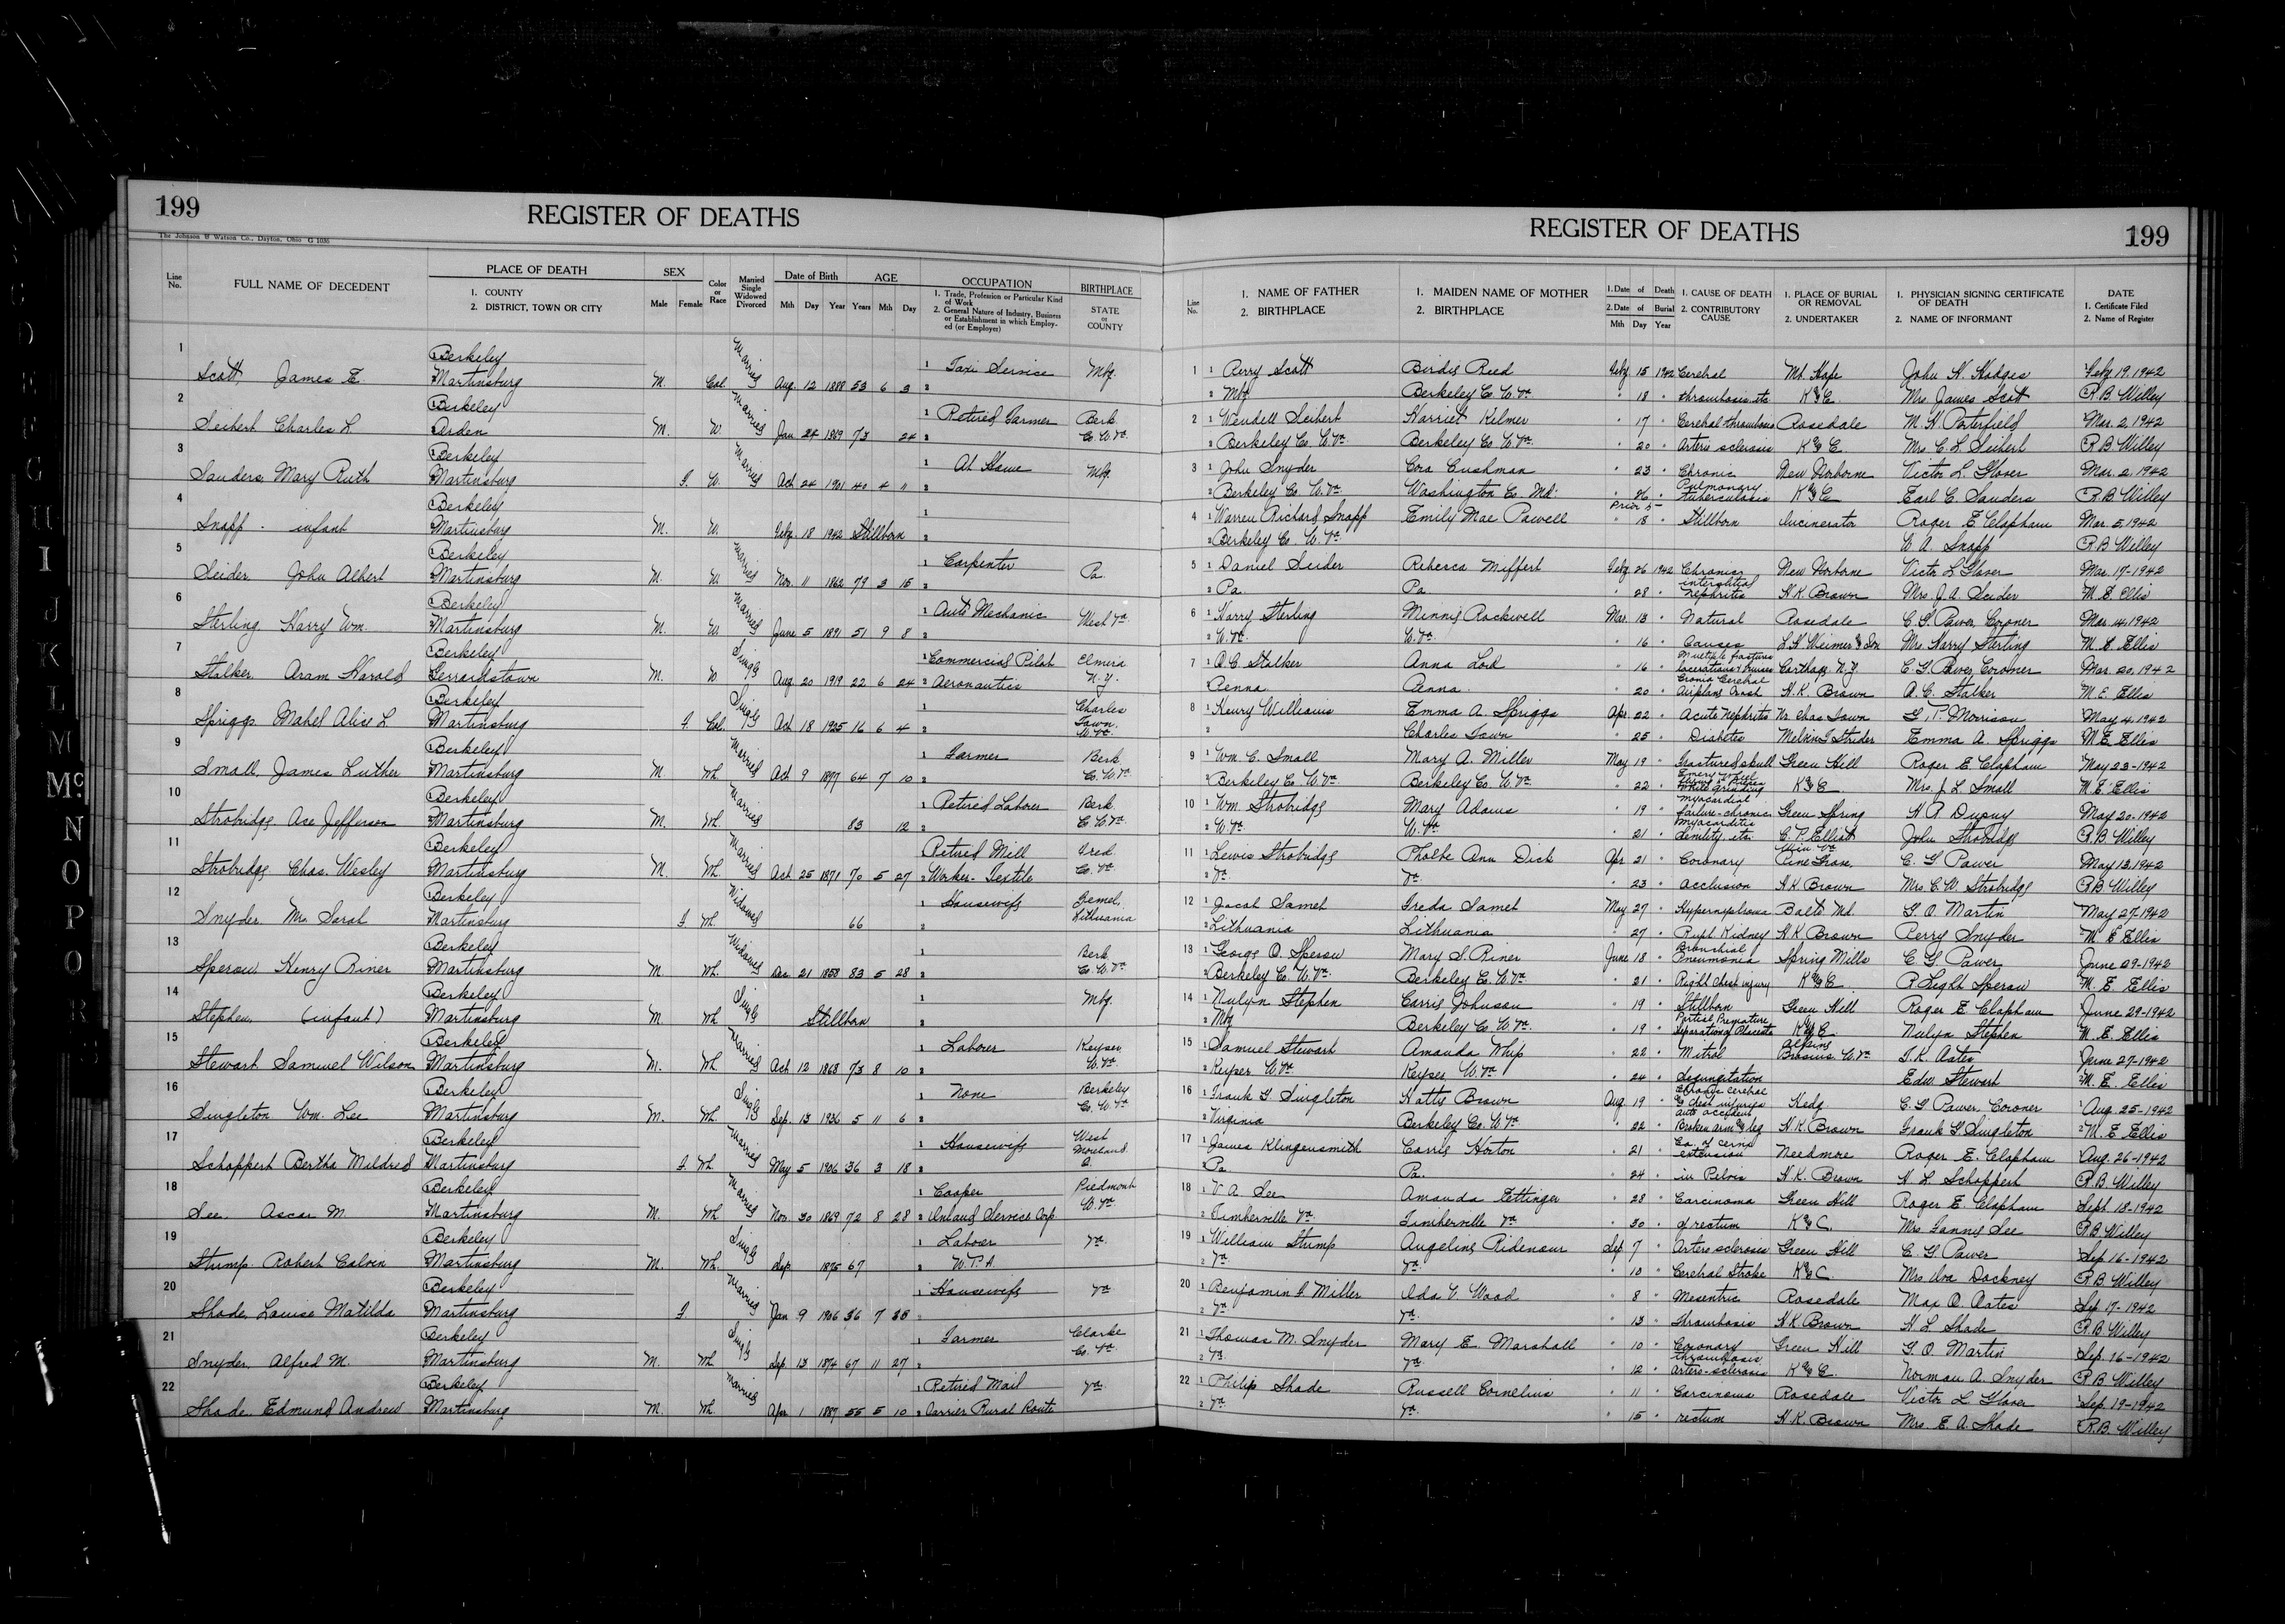 199
REGISTER OF DEATHS
The Johnson & Watson Co., Dayton, Ohio G 1036
Line No.
FULL NAME OF DECEDENT
PLACE OF DEATH
1. COUNTY
2. DISTRICT, TOWN OR CITY
SEX
Male Female
Color or Race
Married Single Widowed Divorced
Date of Birth
Mth Day Year
AGE
Years Mth Day
OCCUPATION
1. Trade, Profession or Particular Kind of Work
2. General Nature of Industry, Business or Establishment in which Employed (or Employer)
BIRTHPLACE
STATE or COUNTY
1 Berkeley Married 1 Taxi Service Mbg.
Scott, James E. Martinsburg M. Col. Aug. 12 1888 53 6 3 2
2 Berkeley Married 1 Retired Farmer Berk.
Seibert Charles L. Arden M. W. Jan 24 1869 73 24 2 Co. W. Va.
3 Berkeley Married 1 At Home Mbg.
Sanders Mary Ruth Martinsburg F. W. Oct 24 1901 40 4 11 2
4 Berkeley 1
Snapp - infant Martinsburg M. W. Feby. 18 1942 Stillborn 2
5 Berkeley Married 1 Carpenter Pa.
Seider John Albert Martinsburg M. W. Nov. 11 1862 79 3 15 2
6 Berkeley Married 1 Auto Mechanic West Va
Sterling Harry Wm. Martinsburg M. W. June 5 1891 51 9 8 2
7 Berkeley Single 1 Commercial Pilot Elmira
Stalker Aram Harold Gerrardstown M. W Aug. 20 1919 22 6 24 2 Aeronautics N.Y.
8 Berkeley Single 1 Charles Town W. Va.
Spriggs Mabel Alice L Martinsburg F Col. Oct 18 1925 16 6 4 2
9 Berkeley Married 1 Farmer Berk.
Small, James Luther Martinsburg M Wh. Oct 9 1897 64 7 10 2 Co. W. Va.
10 Berkeley Married 1 Retired Laborer Berk.
Strobridge Asa Jefferson Martinsburg M. Wh. 83 12 2 Co W. Va.
11 Berkeley Married Retired Mill Fred.
Strobridge Chas. Wesley Martinsburg M. Wh. Oct 25 1871 70 5 27 2 Worker - Textile Co. Va.
12 Berkeley Widowed 1 Housewife
Snyder Mrs Sarah Martinsburg F. Wh. 66 2 Lithuania
13 Berkeley Widowed 1 Berk
Sperow Henry Riner Martinsburg M Wh. Dec. 21 1858 83 5 28 2 Co. W. Va.
14 Berkeley Single 1 Mbg.
Stephen (infant) Martinsburg M. Wh Stillborn 2
15 Berkeley Married 1 Laborer Keyser
Stewart Samuel Wilson Martinsburg M. Wh Oct 12 1868 73 8 10 2 W. Va.
16 Berkeley Single 1 None Berkeley
Singleton Wm. Lee Martinsburg M. Wh. Sep. 13 1936 5 11 6 2 Co. W. Va
17 Berkeley Married 1 Housewife West Moreland
Schoppert Bertha Mildred Martinsburg F Wh. May 5 1906 36 3 18 2
18 Berkeley Married 1 Cooper Piedmont
See Ascar M. Martinsburg M. Wh. Nov. 30 1869 72 8 28 2 Inland Service Corp. W. Va.
19 Berkeley Single 1 Laborer Va.
Stump Robert Calvin Martinsburg M. Wh. Sep. 1875 67 2 W.P.A.
20 Berkeley Married 1 Housewife Va
Shade, Louise Matilda Martinsburg F. Jan 9 1906 36 7 2
21 Berkeley Single 1 Farmer Clarke
Snyder, Alfred M. Martinsburg M. Wh Sep. 13 1874 67 11 27 2 Co. Va.
22 Berkeley Married 1 Retired Mail Va.
Shade Edmund Andrew Martinsburg M. Wh Apr 1 1887 55 5 10 2 Carrier Rural Route
REGISTER OF DEATHS
199
Line No.
1. NAME OF FATHER
2. BIRTHPLACE
1. MAIDEN NAME OF MOTHER
2. BIRTHPLACE
1. Date of Death
2. Date of Burial
Mth Day Year
1. CAUSE OF DEATH
2. CONTRIBUTORY CAUSE
1. PLACE OF BURIAL OR REMOVAL
2. UNDERTAKER
1. PHYSICIAN SIGNING CERTIFICATE OF DEATH
2. NAME OF INFORMANT
DATE
1. Certificate Filed
2. Name of Register
1 1 Perry Scott Birdie Reed Feby. 15 1942 Cerebral Mt. Hope John H. Hodges Feby 19, 1942
2 Mbg Berkeley Co W. Va " 18 " thrombosis etc K & C Mrs. James Scott R. B. Willey
2 1 Wendell Seibert Harriet Kilmer " 17 " Cerebral thrombosis Rosedale M. H. Porterfield Mar. 2, 1942
2 Berkeley Co. W. Va. Berkeley Co. W. Va. " 20 " Arterio sclerosis K & C Mrs. C. L. Seibert R B Willey
3 1 John Snyder Cora Cushman " 23 " Chronic New Norborne Victor L. Glover Mar. 2, 1942
2 Berkeley Co W. Va Washington Co. Md. " 26 " Pulmonary tuberculosis K & C Earl C. Sanders R. B. Willey
4 1 Warren Richard Snapp Emily Mae Powell Prior to 18 " Stillborn Incinerator Roger E Clapham Mar. 5, 1942
2 Berkeley Co. W. Va. W. A. Snapp R B Willey
5 1 Daniel Seider Rebecca Miffert Feby 26 1942 Chronic New Norborne Victor L Glover Mar. 17-1942
2 Pa. Pa " 28 " interstitial nephritis H. K. Brown Mrs. J. A. Seider M. E. Ellis
6 1 Harry Sterling Minnie Rockwell Mar. 13 " Natural Rosedale C. G. Power, Coroner Mar. 14, 1942
2 W. Va. W. Va. " 16 " Causes L. H. Weimer & Son Mrs. Harry Sterling M. E Ellis
7 1 A. C. Stalker Anna Lord " 16 " Multiple fractures lacerations & bruises Carthage N.Y. C. G. Power, Coroner Mar. 20, 1942
2 Penna. Penna. " 20 " Cerebral Airplane Crash H. K. Brown A. C. Stalker M. E. Ellis
8 1 Henry Williams Emma A. Spriggs Apr. 22 " Acute Nephritis Nr. Chas Town G. P. Morrison May 4, 1942
2 Charles Town " 25 " Diabetes Melvin T Strider Emma A. Spriggs M. E. Ellis
9 1 Wm. C. Small Mary A. Miller May 19 " fractured skull Green Hill Roger E Clapham May 23-1942
2 Berkeley Co W. Va. Berkeley Co. W. Va " 22 " Emery wheel while grinding K & C Mrs. J. L. Small M. E. Ellis
10 1 Wm. Strobridge Mary Adams " 19 " myocardial failure - chronic Green Spring H. A Dupuy May 20-1942
2 W. Va W. Va " 21 " myocarditis senility, etc. C. P. Elliott John Strobridge R. B. Willey
11 1 Lewis Strobridge Phoebe Ann Dick Apr 21 " Coronary Pine Grove C. G Power May 13, 1942
2 Va. Va. " 23 " occlusion H K Brown Mrs. C. W. Strobridge R. B. Willey
12 1 Jacob Samet Freda Samet May 27 " Hypernephroma Balto Md. G. O Martin May 27-1942
2 Lithuania Lithuania " 27 " Kidney H K Brown Perry Snyder M E Ellis
13 1 George O. Sperow Mary S. Riner June 18 " Bronchial Pneumonia Spring Mills C G. Power June 29-1942
2 Berkeley C. W. Va. Berkeley Co. W. Va. " 21 " Right chest injury K & C R Light Sperow M. E Ellis
14 1 Nulyn Stephen Carrie Johnson " 19 " Stillborn Green Hill Roger E Clapham June 29-1942
2 Mbg Berkeley Co W. Va. " 19 " Partial Premature Separation of Placenta K & C Nulyn Stephen M. E. Ellis
15 1 Samuel Stewart Amanda Whip " 22 " Mitral Alpine Brosius W. Va. T. K. Oates June 27-1942
2 Keyser W. Va. Keyser W. Va " 24 " Regurgitation Edw. Stewart M. E. Ellis
16 1 Frank G Singleton Hattie Brown Aug. 19 " cerebral & chest injuries auto accident Hedg. C. G Power, Coroner Aug. 25-1942
2 Virginia Berkeley Co. W. Va " 22 " Broken arm & leg H. K. Brown Frank G Singleton M. E Ellis
17 1 James Klingensmith Carrie Horton " 21 " Ca. of cervix extension Needmore Roger E. Clapham Aug. 26-1942
2 Pa. Pa. " 24 " in Pelvis H. K. Brown H. L. Schoppert R. B. Willey
18 1 V. A. See Amanda Fettinger " 28 " Carcinoma Green Hill Roger E. Clapham Sept. 18-1942
2 Timberville Va. Timberville Va " 30 " of rectum K & C. Mrs Fannie See R. B. Willey
19 1 William Stump Angeline Ridenour Sep. 7 " Arterio sclerosis Green Hill C. G. Power Sep 16-1942
2 Va. Va. " 10 " Cerebral Stroke K & C. Mrs Iva Dockney R. B. Willey
20 1 Benjamin F. Miller Ida V. Wood " 8 " Mesentric Rosedale Max O. Oates Sep 17-1942
2 Va Va. " 13 " thrombosis H K Brown H L Shade R. B. Willey
21 1 Thomas M. Snyder Mary E. Marshall " 10 " Coronary thrombosis Green Hill G. O. Martin Sep. 16-1942
2 Va. Va. " 12 " Arterio-sclerosis K & C Norman A. Snyder R B Willey
22 1 Philip Shade Russell Cornelius " 11 " Carcinoma Rosedale Victor L Glover Sep. 19-1942
2 Va. Va. " 15 " rectum H K Brown Mrs. E. A. Shade R. B. Willey
I
J
K
L
M
Mc
N
O
P
Q
R